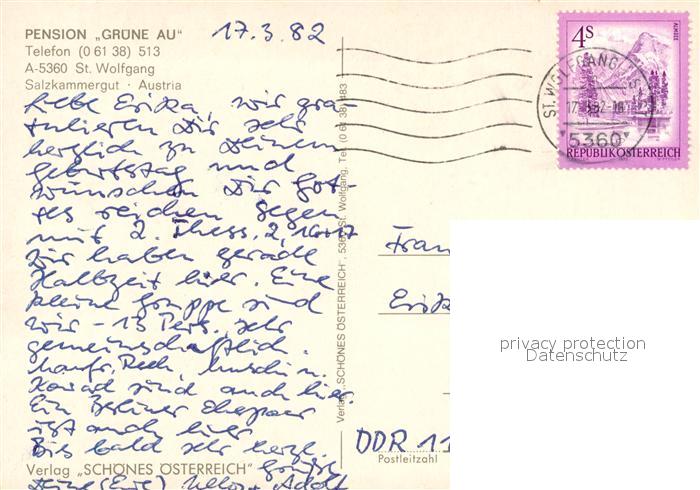 PENSION „GRÜNE AU"
Telefon (0 61 38) 513
A-5360 St. Wolfgang
Salzkammergut · Austria
17.3.82
Liebe Erika, wir gra-
tulieren Dir sehr
herzlich zu Deinem
Geburtstag und
wünschen Dir Got-
tes reichen Segen
mit 2. Thess. 2, 16+17
Wir haben gerade
Halbzeit hier. Eine
kleine Gruppe sind
wir - 13 Pers. sehr
gemeinschaftlich.
sind auch hier.
Ein Berliner Ehepaar
ist auch hier
Bis bald sehr herzl.
Grüße
Adolf
Verlag „SCHÖNES ÖSTERREICH"
Verlag „SCHÖNES ÖSTERREICH", 5360 St. Wolfgang, Tel. (0 61 38) 483
4S
ALMSEE
REPUBLIK ÖSTERREICH
ST. WOLFGANG
5360
Frau
Erika
privacy protection
Datenschutz
DDR 11
Postleitzahl